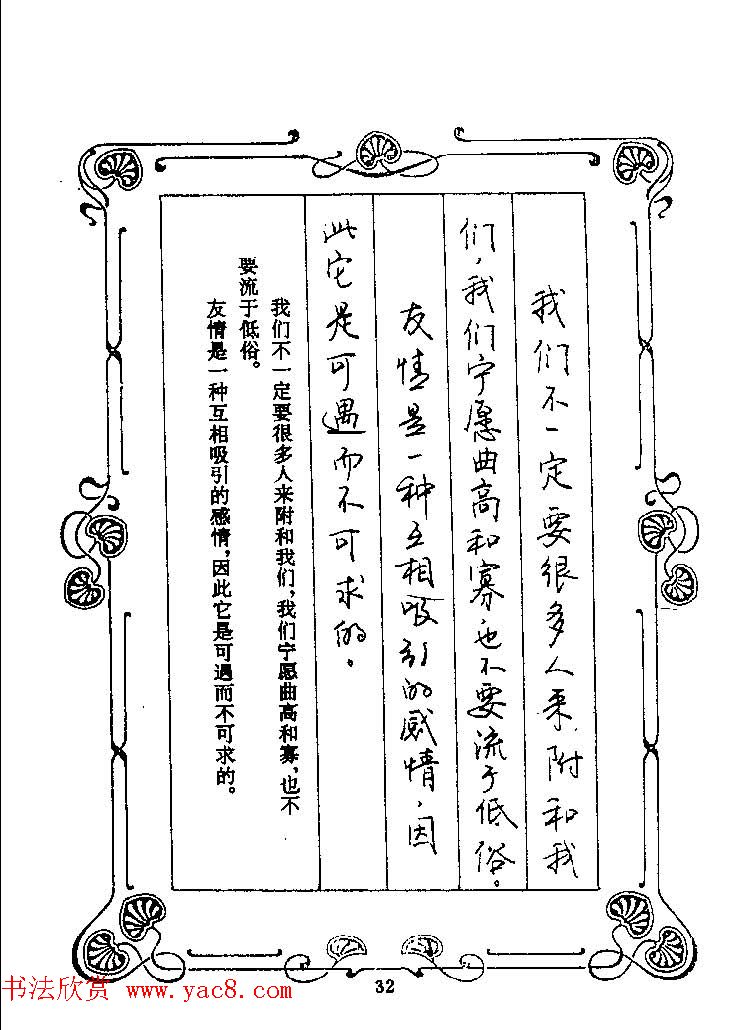 我们不一定要很多人来附和我
们，我们宁愿曲高和寡，也不要流于低俗。
友情是一种互相吸引的感情，因
此它是可遇而不可求的。
我们不一定要很多人来附和我们，我们宁愿曲高和寡，也不
要流于低俗。
友情是一种互相吸引的感情，因此它是可遇而不可求的。
32
书法欣赏 www.yac8.com